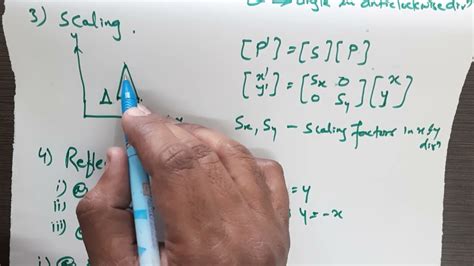 angle in anticlockwise dirⁿ
3) Scaling.
y
[P'] = [S] [P]
[x' y'] = [Sx 0 0 Sy] [x y]
Sx, Sy - Scaling factors in x & y
dirⁿ
4) Refle
i)
= y
ii)
y = -x
iii)
i)